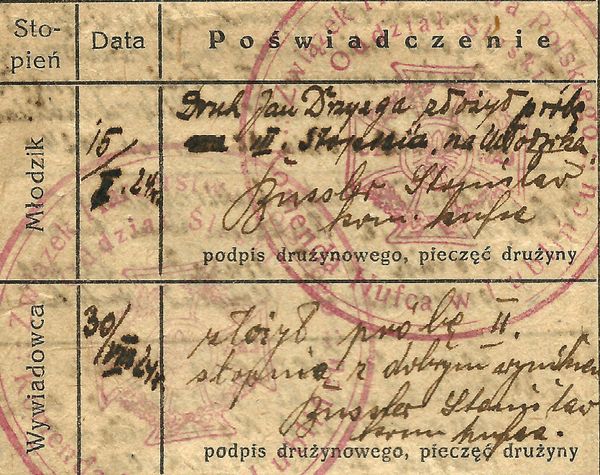 Sto-
pień
Data
Poświadczenie
Młodzik
15/
I. 24r.
Druh Jan Drzyzga złożył próbę
III. stopnia, na Młodzika
Büssler Stanisław
kom. hufca
podpis drużynowego, pieczęć drużyny
Wywiadowca
30/
VII 24r.
złożył próbę II.
stopnia z dobrym wynikiem
Büssler Stanisław
kom. hufca.
podpis drużynowego, pieczęć drużyny
Związek
Polskiego
Oddział
Komenda Hufca w Lublińcu
Związek
Oddział